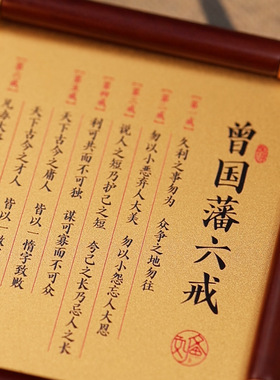 曾国藩六戒
【第一戒】
久利之事勿为 众争之地勿往
【第二戒】
勿以小恶弃人大美 勿以小怨忘人大恩
【第三戒】
说人之短乃护己之短 夸己之长乃忌人之长
【第四戒】
利可共而不可独 谋可寡而不可众
【第五戒】
天下古今之庸人 皆以一惰字致败
天下古今之才人 皆以一
【第六戒】